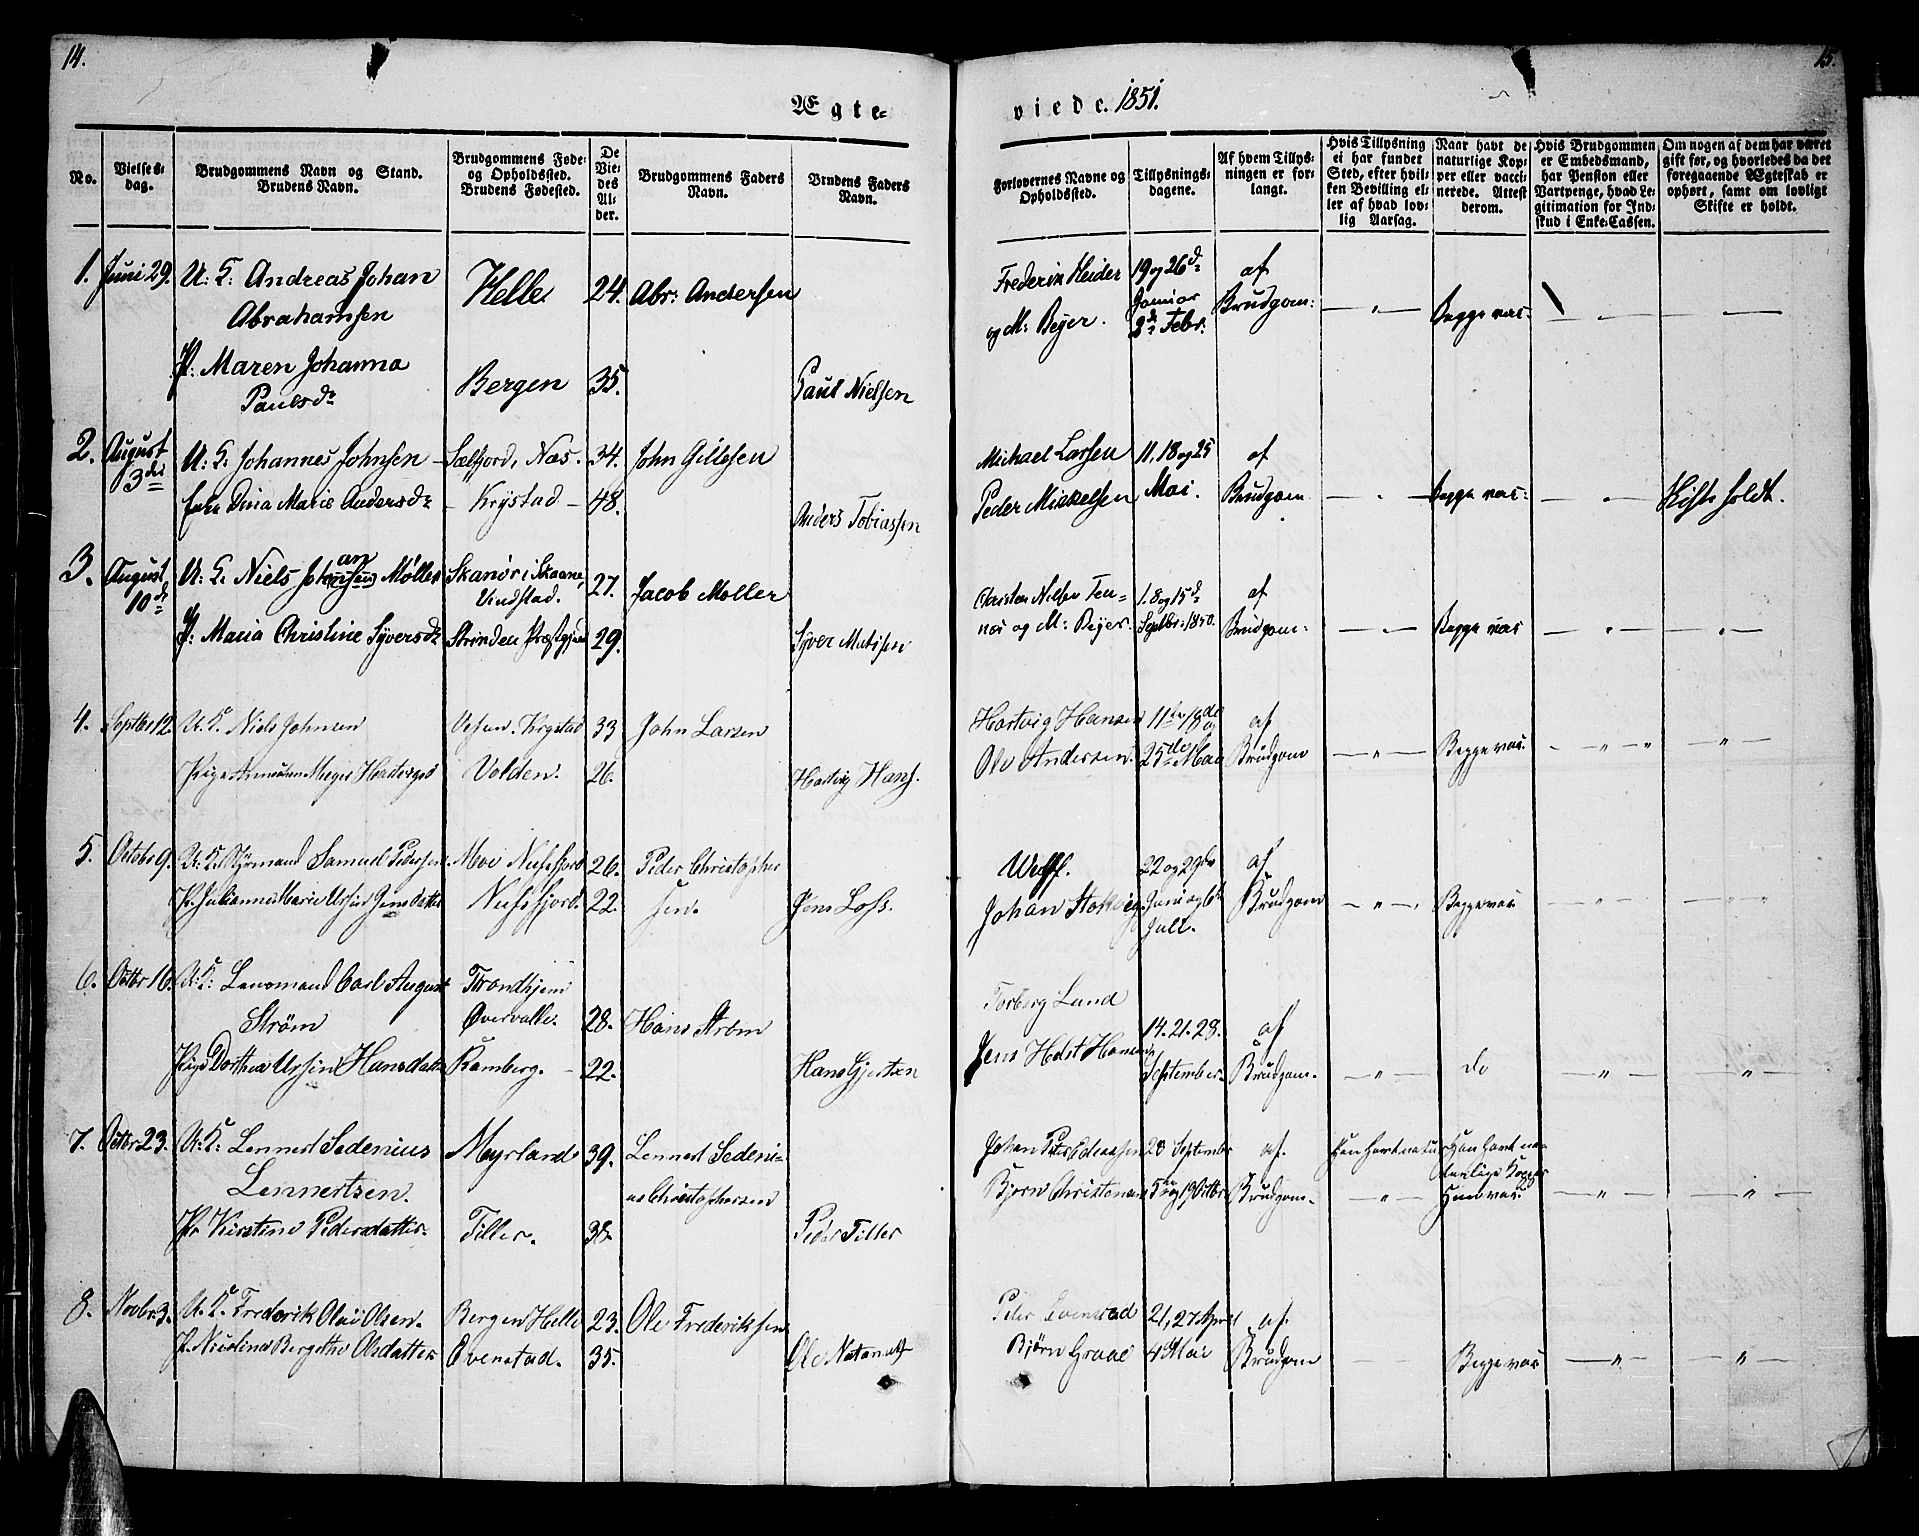 14.
15.
Ægte-
viede. 1851.
No.
Vielses-
dag.
Brudgommens Navn og Stand.
Brudens Navn.
Brudgommens Føde-
og Opholdssted.
Brudens Fødested.
De
Vie-
des
Al-
der.
Brudgommens Faders
Navn.
Brudens Faders
Navn.
Forlovernes Navne og
Opholdssted.
Tillysnings-
dagene.
Af hvem Tillys-
ningen er for-
langt.
Hvis Tillysning
ei har fundet
Sted, efter hvil-
ken Bevilling el-
ler af hvad lov-
lig Aarsag.
Naar havt de
naturlige Kop-
per eller vacci-
nerede. Attest
derom.
Hvis Brudgommen
er Embedsmand,
har Pension eller
Vartpenge, hvad Le-
gitimation for Ind-
skud i Enke-Cassen.
Om nogen af dem har været
gift før, og hvorledes da det
foregaaende Ægteskab er
ophørt, samt om lovligt
Skifte er holdt.
1. Juni 29. U: K: Andreas Johan Helle 24. Abr: Andersen
Abrahamsen
P: Maren Johanna Bergen 35. Paul Nielsen
Paulsdr
Frederik Heider 19 og 26d: af
og M: Beyer. Januar Brudgom: — " — Begge vac: — " —
2d Febr.
2. August U: K: Johannes Johnsen — Sælfjord, Næs. 34. John Gillesen
3die Enke Dina Marie Andersdr — Krystad — 48. Anders Tobiassen
Michael Larsen 11, 18 og 25 af
Peder Mikkelsen Mai. Brudgom — " — Begge vac: — " — Skifte holdt.
3. August U: K: Niels Johansen Møller Skanør i Skaane, 27. Jacob Møller
an
10de Vindstad.
P: Maria Christine Syversdr Strinden Præstgjeld 29. Syver Matisen
Christen Nilsen Ten- 1. 8 og 15d: af
nes og M: Beyer. Septbr: 1850. Brudgom: — " — Begge vac — " — "
4. Septbr 12. U. K. Niels Johnsen Krystad 33 John Larsen
Pige Meyer Volden. 26. Hartvig Hans.
Hartvig Hansen 11te, 18de og af
Ole Andersen. 25de Mai Brudgom — " — Begge vac. — " " "
5. Octobr 9. U: K: Styrmand Samuel Pedersen Moe Nufsfjord 26. Peder Christopher
P. Julianne Marie Ursin Jensdatter Nufsfjord. 22. sen. Jens Lofs.
Wulff. 22 og 29de af
Johan Juni og 6te Brudgom — " — Begge vac — " "
Juli.
6. Octbr 16. U: K: Lensmand Carl August Trondhjem
Strøm 28. Hans Strøm
Pige Dorthea Ursin Hansdatter Ramberg. — 22. Hans Gjertsen
Torberg Lund
Jens Holst Hansen 14. 21. 28. af
September. Brudgom. — " — do — " — "
7. Octbr 23. U: K: Lennert Sedenius Myrland 39. Lennert Sedeni-
Lennertsen. us Christophersen
P. Kirstine Pedersdatter. Tiller. 38. Peder Tiller
Johan Peter 28 September af.
Bjørn 5 og 19 Octbr Brudgom. — " — Hun vac: — " — "
8. Novbr 3. U. K. Frederik Olai Olsen. Bergen Helle 23. Ole Frederiksen
P. Nicolina Bergithe Olsdatter Evenstad. 35. Ole
Peter Evenstad 21, 27 April af.
Bjørn Graae 4 Mai Brudgom — Begge vac — " — "